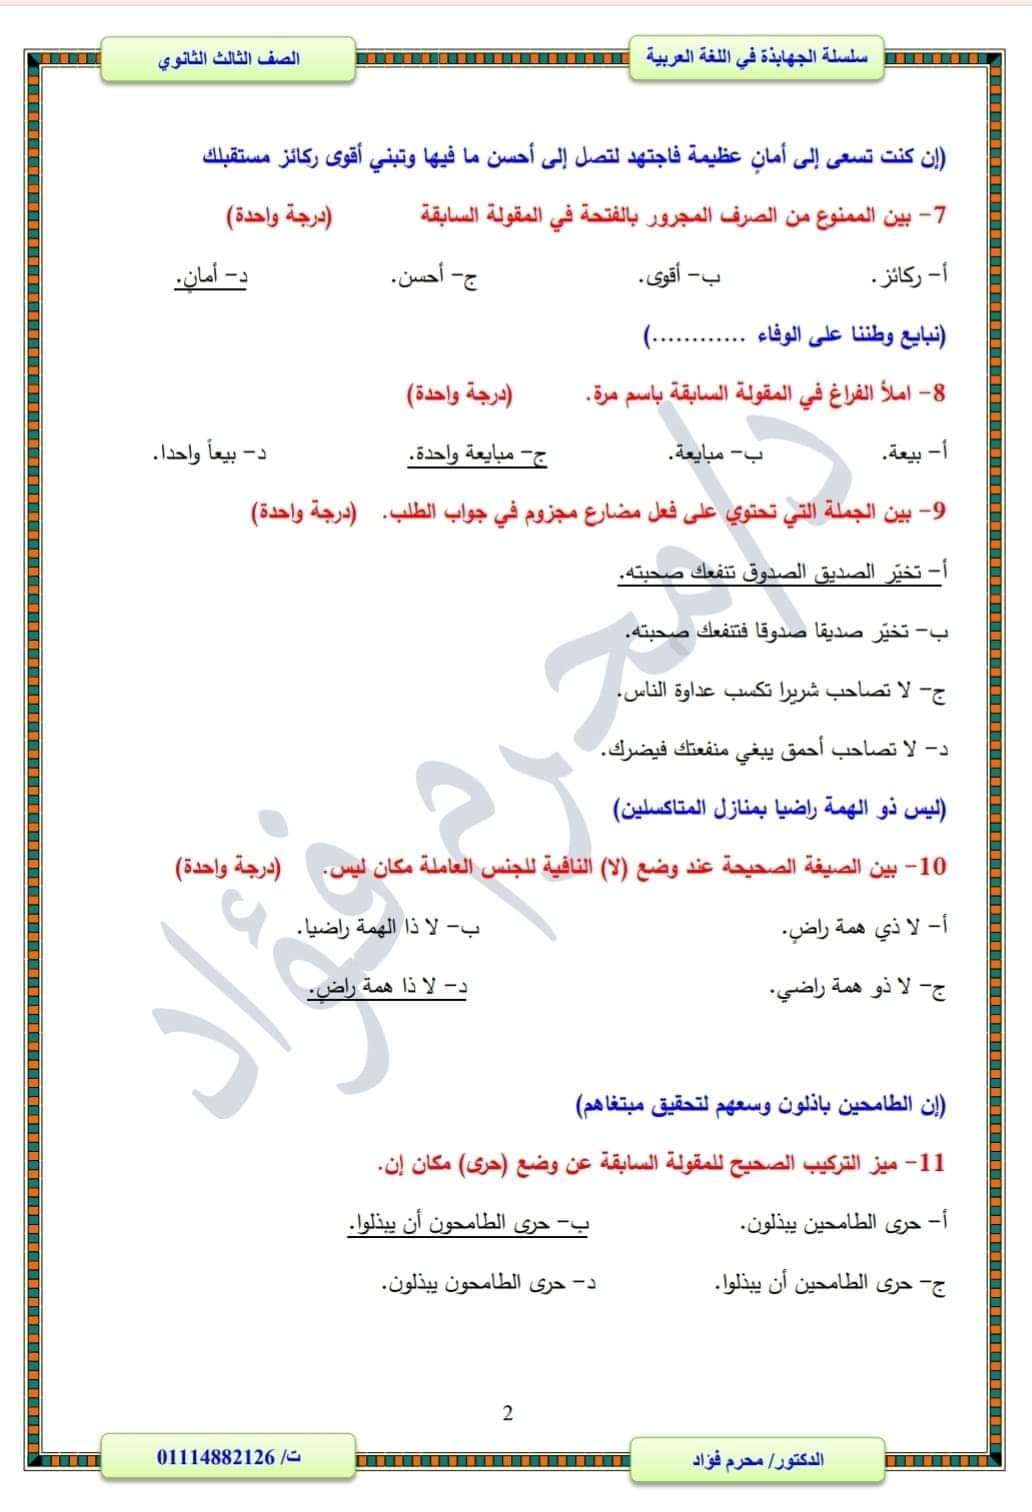 سلسلة الجهابذة في اللغة العربية
الصف الثالث الثانوي
(إن كنت تسعى إلى أمانٍ عظيمة فاجتهد لتصل إلى أحسن ما فيها وتبني أقوى ركائز مستقبلك
7- بين الممنوع من الصرف المجرور بالفتحة في المقولة السابقة (درجة واحدة)
أ- ركائز. ب- أقوى. ج- أحسن. د- أمانٍ.
(نبايع وطننا على الوفاء ............)
8- املأ الفراغ في المقولة السابقة باسم مرة. (درجة واحدة)
أ- بيعة. ب- مبايعة. ج- مبايعة واحدة. د- بيعاً واحدا.
9- بين الجملة التي تحتوي على فعل مضارع مجزوم في جواب الطلب. (درجة واحدة)
أ- تخيّر الصديق الصدوق تنفعك صحبته.
ب- تخيّر صديقا صدوقا فتنفعك صحبته.
ج- لا تصاحب شريرا تكسب عداوة الناس.
د- لا تصاحب أحمق يبغي منفعتك فيضرك.
(ليس ذو الهمة راضيا بمنازل المتاكسلين)
10- بين الصيغة الصحيحة عند وضع (لا) النافية للجنس العاملة مكان ليس. (درجة واحدة)
أ- لا ذي همة راضٍ. ب- لا ذا الهمة راضيا.
ج- لا ذو همة راضي. د- لا ذا همة راضٍ.
(إن الطامحين باذلون وسعهم لتحقيق مبتغاهم)
11- ميز التركيب الصحيح للمقولة السابقة عن وضع (حرى) مكان إن.
أ- حرى الطامحين يبذلون. ب- حرى الطامحون أن يبذلوا.
ج- حرى الطامحين أن يبذلوا. د- حرى الطامحون يبذلون.
د/محرم فؤاد
2
الدكتور/ محرم فؤاد
ت/ 01114882126